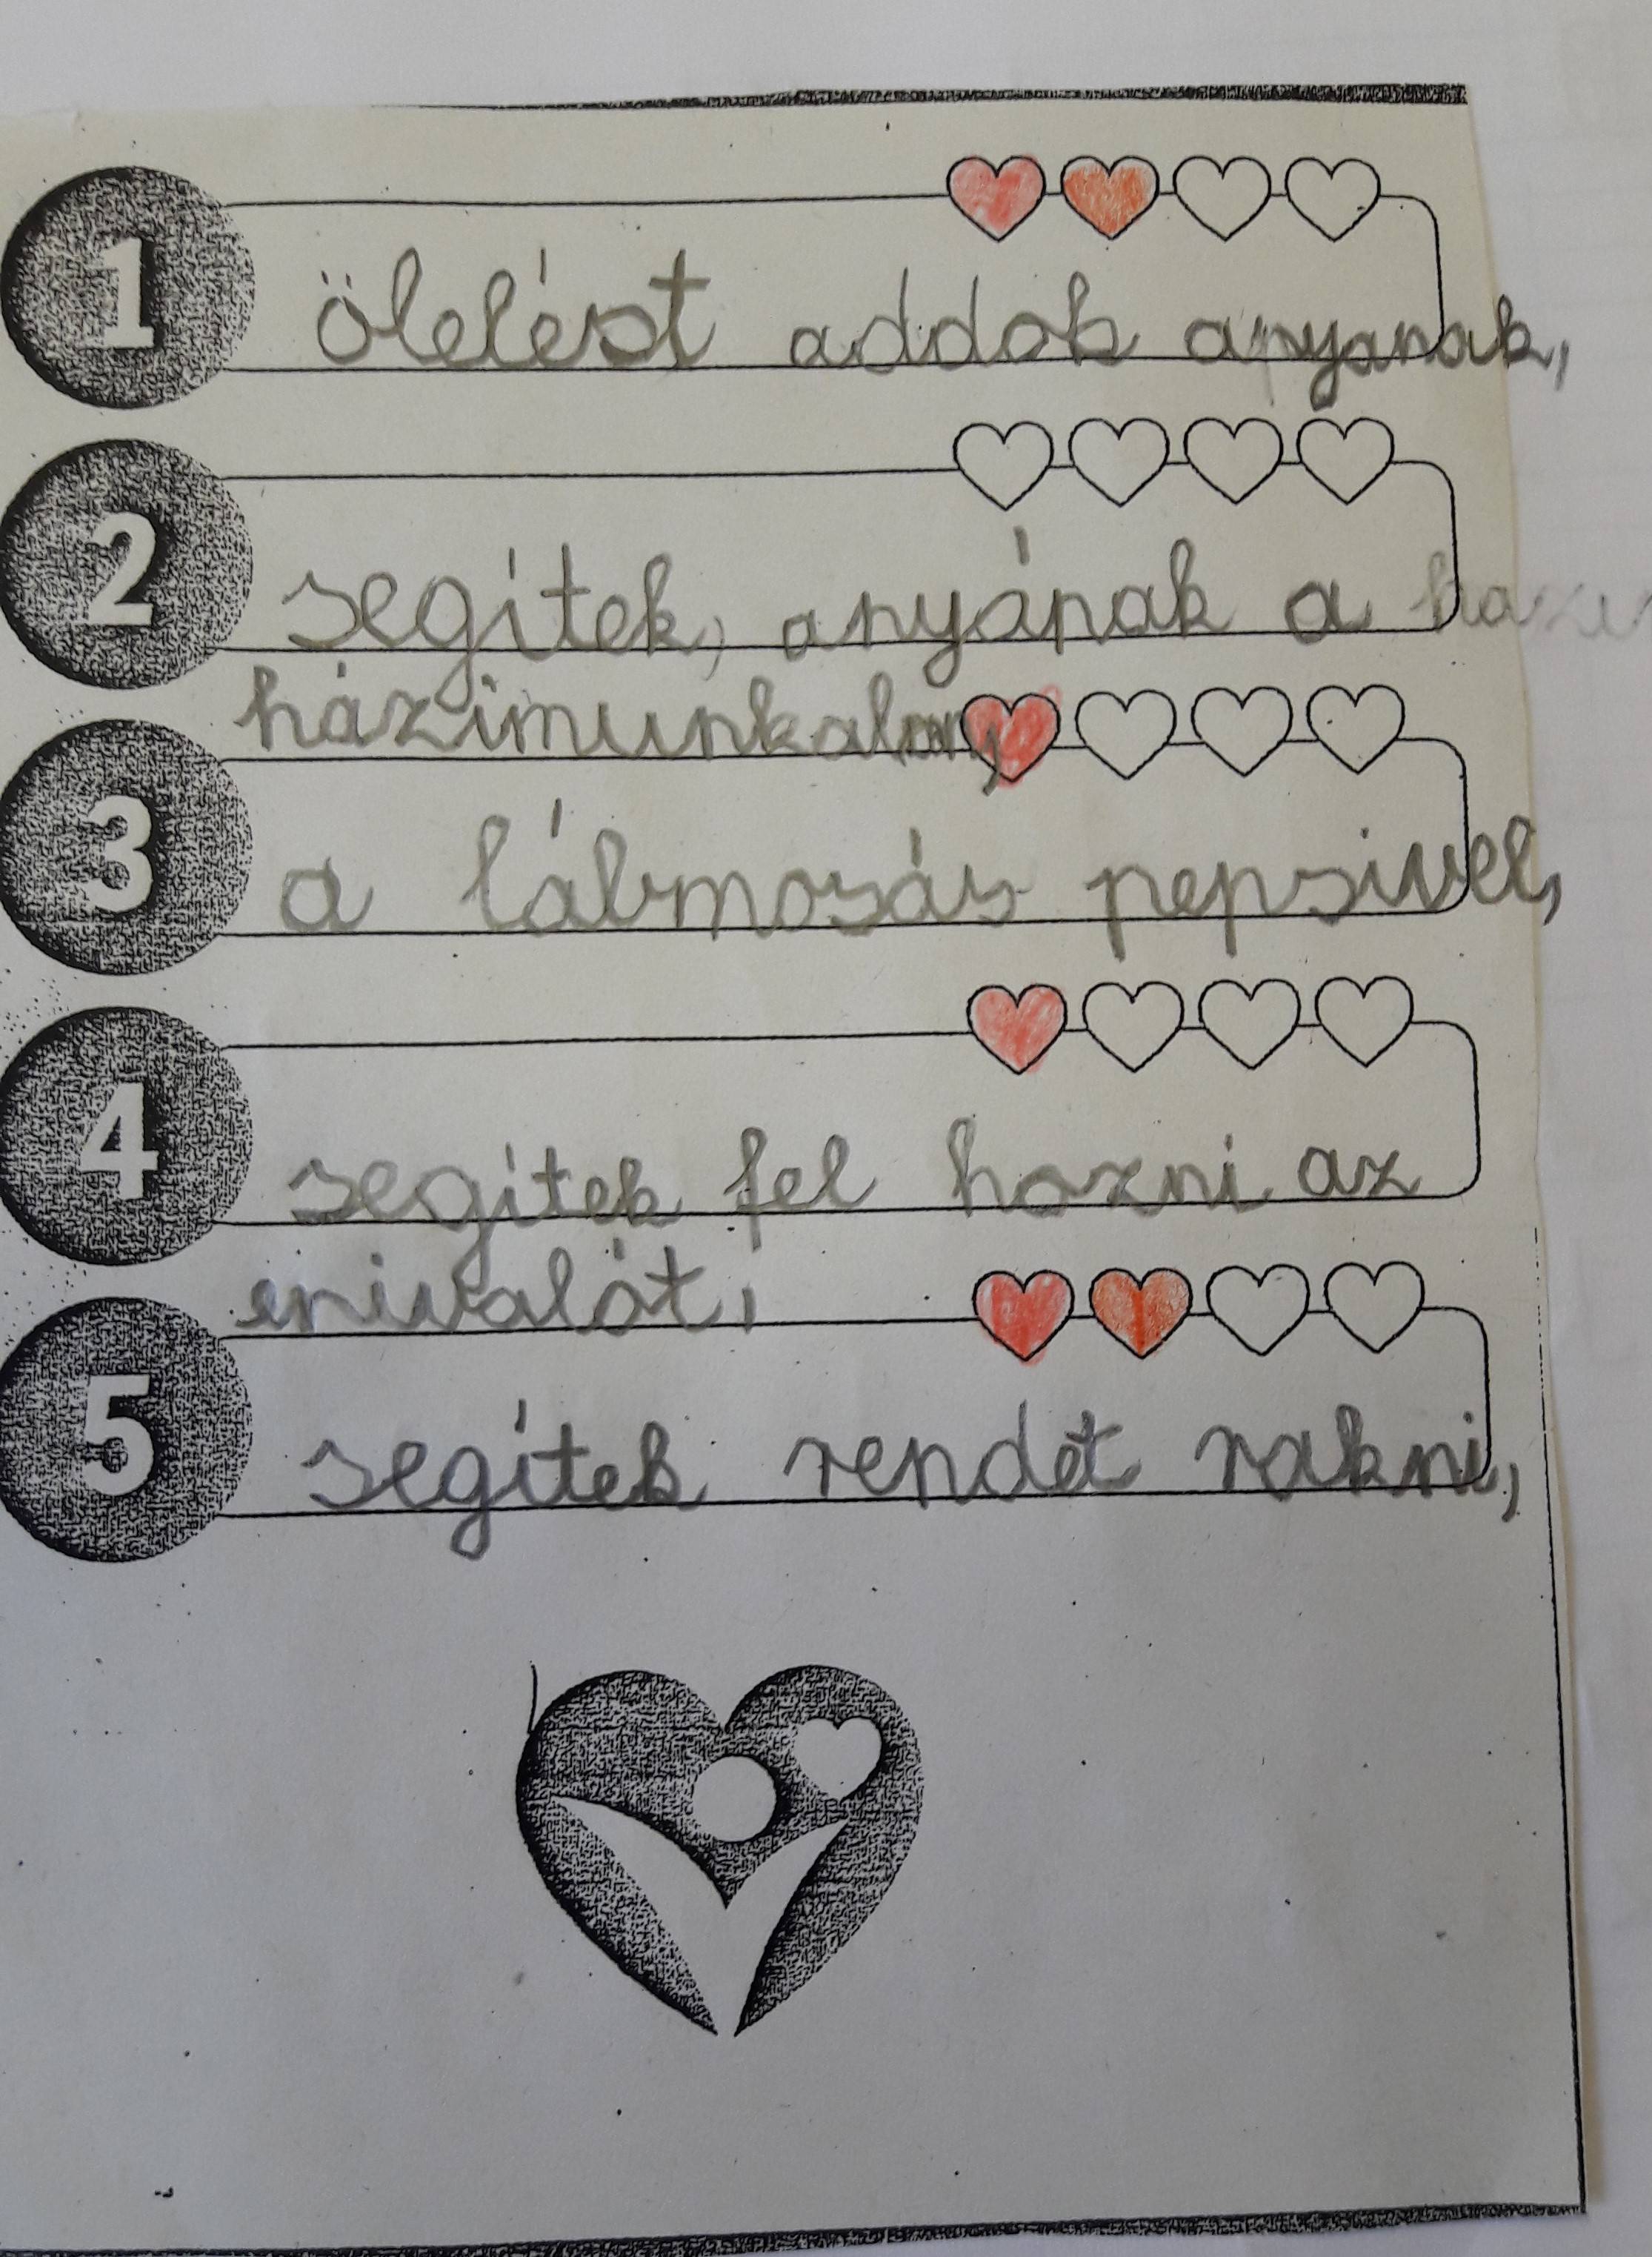 1
ölelést addok anyanak,
2
segítek, anyának a
házimunkaban,
3
a lábmosás pepsivel,
4
segítek fel hozni az
enivalót,
5
segítek rendet rakni,